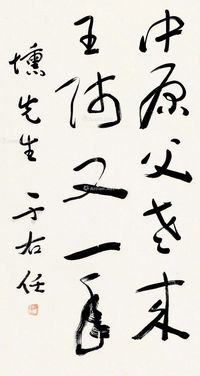 中原父老来
王師又一年
壎先生 于右任